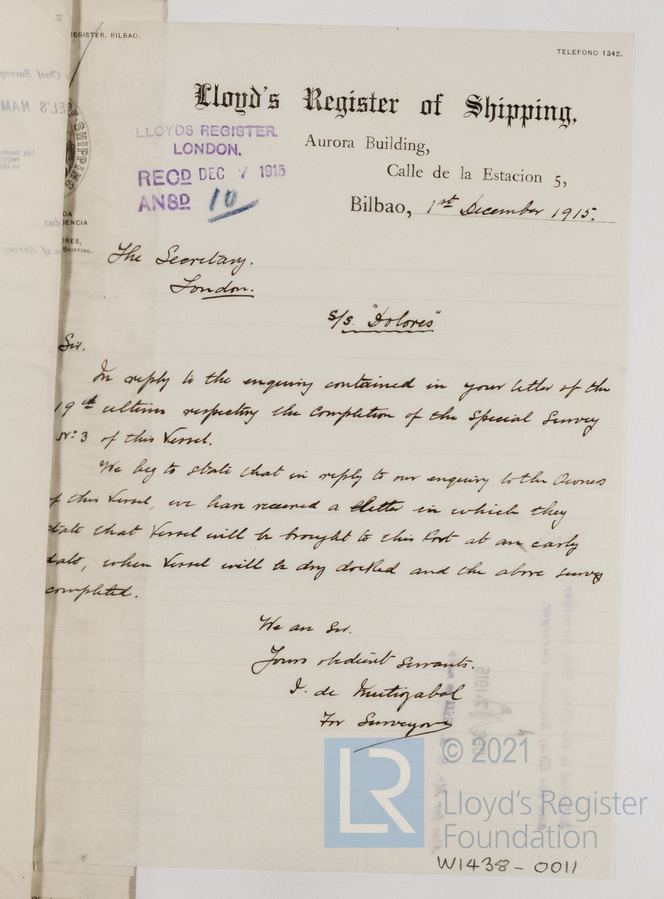 EGISTER, BILBAO.
TELEFONO 1342.
Lloyd's Register of Shipping,
LLOYDS REGISTER.
LONDON.
RECD DEC 7 1915
ANSD 10
Aurora Building,
Calle de la Estacion 5,
Bilbao, 1st December 1915.
The Secretary.
London.
s/s. "Dolores"
Sir.
In reply to the enquiry contained in your letter of the
19th ultimo respecting the completion of the Special Survey
No 3 of this Vessel.
We beg to state that in reply to our enquiry to the Owners
of this Vessel, we have received a letter in which they
state that Vessel will be brought to this Port at an early
date, when Vessel will be dry docked and the above survey
completed.
We are Sir.
Yours obedient servants.
I. de
For Surveyors
© 2021
LR
Lloyd's Register
Foundation
W1438-0011